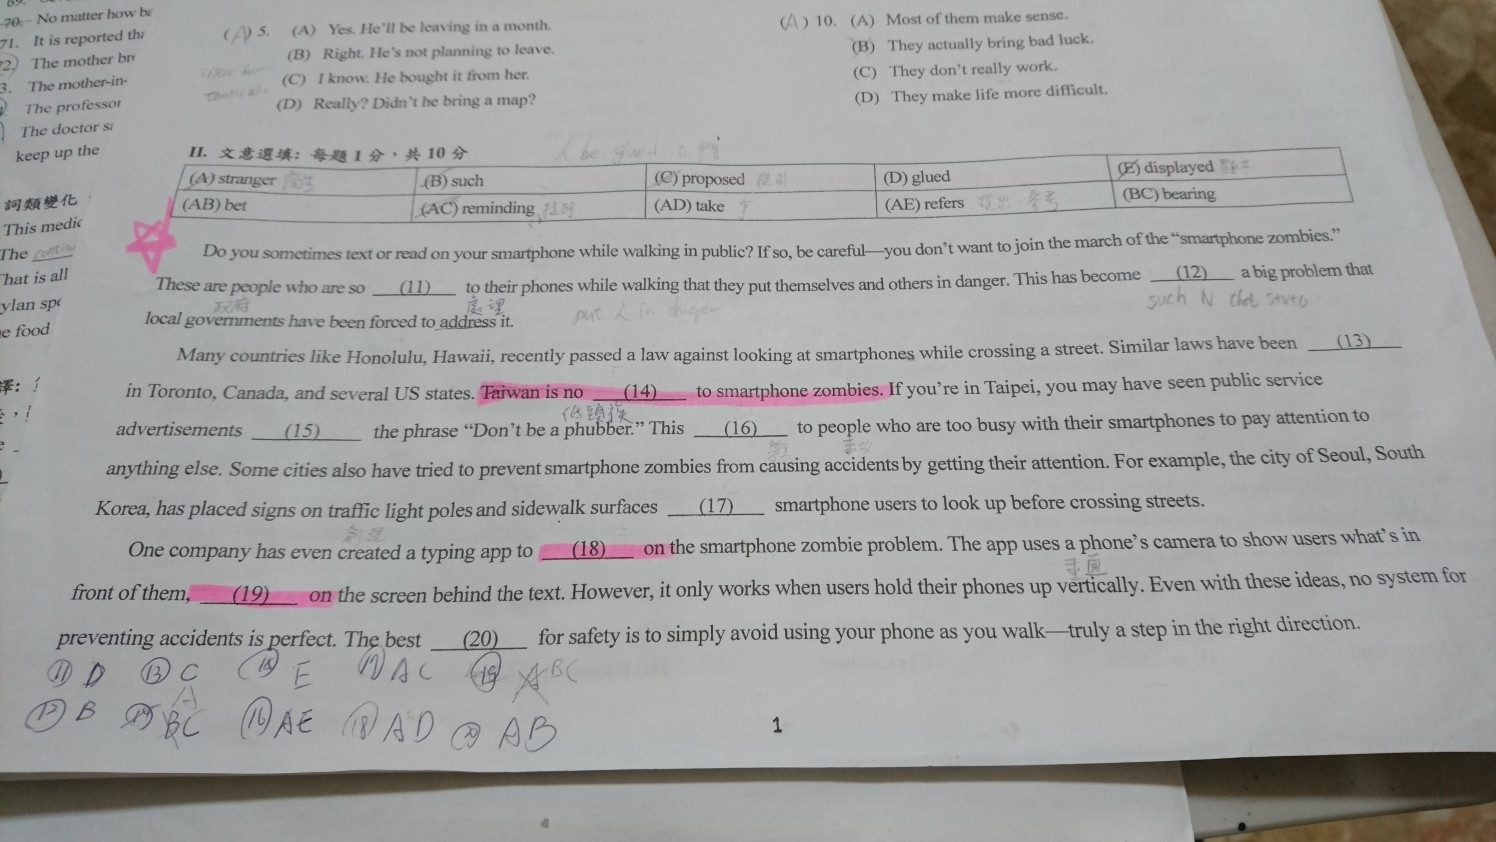 70. No matter how be
71. It is reported tha
2. The mother br
3. The mother-in-
The professor
The doctor s
keep up the
詞類變化
This medic
The
hat is all
ylan spe
e food
譯:
(A) 5. (A) Yes. He'll be leaving in a month.
(B) Right. He's not planning to leave.
(C) I know. He bought it from her.
(D) Really? Didn't he bring a map?
(A) 10. (A) Most of them make sense.
(B) They actually bring bad luck.
(C) They don't really work.
(D) They make life more difficult.
II. 文意選填：每題 1 分，共 10 分
be glued
(A) stranger (B) such (C) proposed (D) glued (E) displayed
(AB) bet (AC) reminding (AD) take (AE) refers (BC) bearing
Do you sometimes text or read on your smartphone while walking in public? If so, be careful—you don't want to join the march of the “smartphone zombies.”
These are people who are so (11) to their phones while walking that they put themselves and others in danger. This has become (12) a big problem that
政府 處理 put in danger such N that
local governments have been forced to address it.
Many countries like Honolulu, Hawaii, recently passed a law against looking at smartphones while crossing a street. Similar laws have been (13)
in Toronto, Canada, and several US states. Taiwan is no (14) to smartphone zombies. If you're in Taipei, you may have seen public service
低頭族
advertisements (15) the phrase “Don't be a phubber.” This (16) to people who are too busy with their smartphones to pay attention to
anything else. Some cities also have tried to prevent smartphone zombies from causing accidents by getting their attention. For example, the city of Seoul, South
Korea, has placed signs on traffic light poles and sidewalk surfaces (17) smartphone users to look up before crossing streets.
One company has even created a typing app to (18) on the smartphone zombie problem. The app uses a phone's camera to show users what's in
front of them, (19) on the screen behind the text. However, it only works when users hold their phones up vertically. Even with these ideas, no system for
preventing accidents is perfect. The best (20) for safety is to simply avoid using your phone as you walk—truly a step in the right direction.
⑪ D ⑬ C ⑮ E ⑰ AC ⑲ BC
A
⑫ B ⑭ BC ⑯ AE ⑱ AD ⑳ AB
1